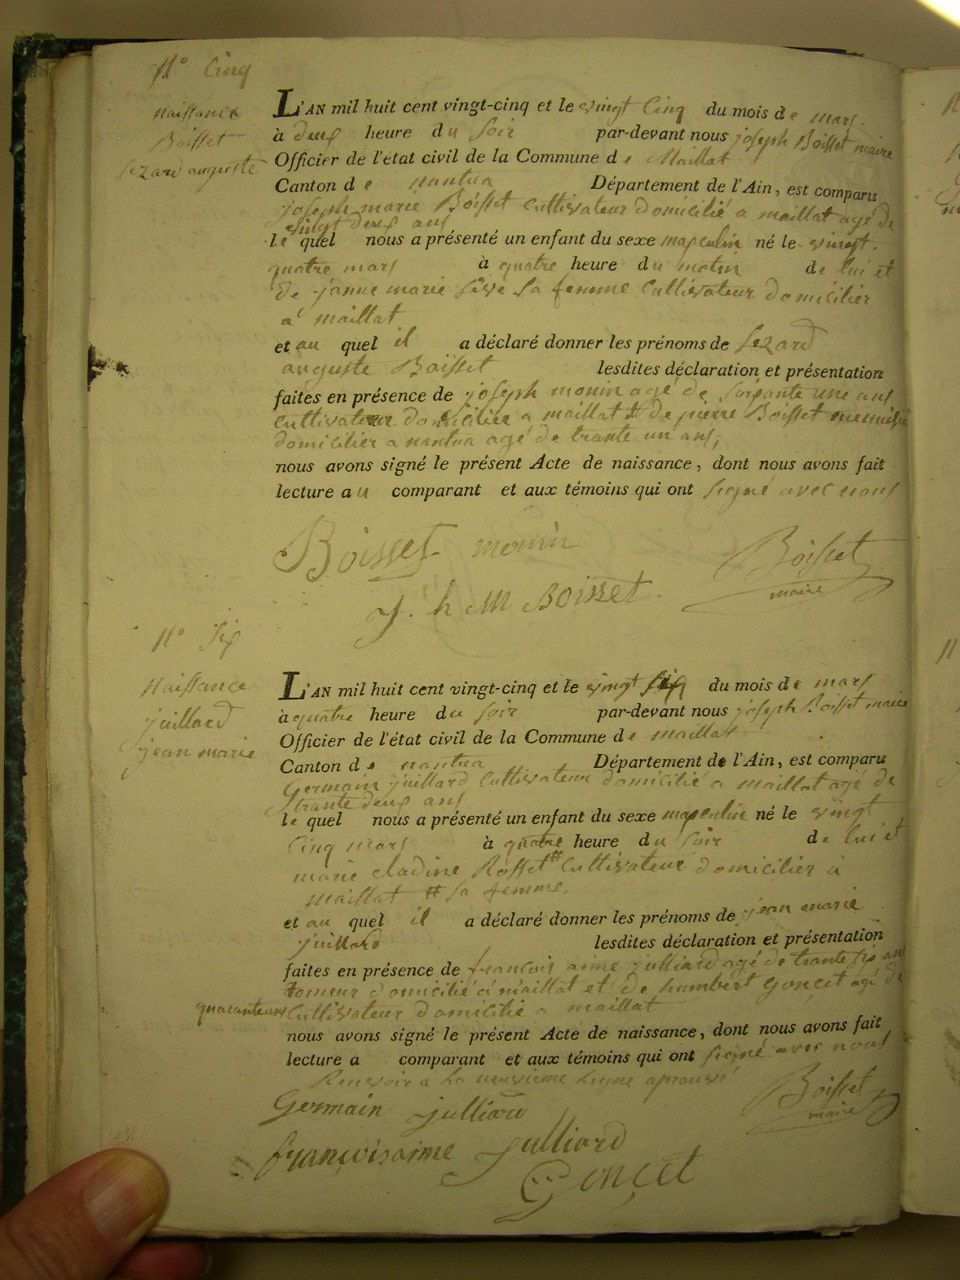 N° Cinq
Naissance
Boisset
Sezard auguste
L'AN mil huit cent vingt-cinq et le vingt Cinq du mois de mars.
à deux heure du soir par-devant nous joseph Boisset maire
Officier de l'etat civil de la Commune de Maillat
Canton de nantua Département de l'Ain, est comparu
joseph marie Boisset Cultivateur domicilié a maillat agé de
vingt deux ans
le quel nous a présenté un enfant du sexe masculin né le vingt.
quatre mars à quatre heure du matin de lui et
de janne marie sa femme Cultivateur domicilier
a maillat
et au quel il a déclaré donner les prénoms de Sezard
auguste Boisset lesdites déclaration et présentation
faites en présence de joseph monin agé de soisante une ans
Cultivateur domicilier a maillat de pierre Boisset menuisie
domicilier a nantua agé de trante un ans,
nous avons signé le présent Acte de naissance, dont nous avons fait
lecture au comparant et aux témoins qui ont signé avec nous
Boisset monin Boisset
maire
J. h M Boisset.
N° Six
Naissance
juillard
jean marie
L'AN mil huit cent vingt-cinq et le vingt six du mois de mars
à quatre heure du soir par-devant nous joseph Boisset maire
Officier de l'état civil de la Commune de maillat
Canton de nantua Département de l'Ain, est comparu
Germain juillard Cultivateur domicilié a maillat agé de
trante deux ans
le quel nous a présenté un enfant du sexe masculin né le vingt
Cinq mars à quatre heure du soir de lui et
marie cladine Rosset Cultivateur domicilier à
maillat # sa femme.
et au quel il a déclaré donner les prénoms de jean marie
juillard lesdites déclaration et présentation
faites en présence de françois aime julliard agé de trante six an
domicilié a maillat et de humbert Goncet agé de
Cultivateur domicilié a maillat
nous avons signé le présent Acte de naissance, dont nous avons fait
lecture a comparant et aux témoins qui ont signé avec nous
Renvoir a la neuvieme ligne aprouvé
Germain julliard Boisset
maire
françois aime Julliard
Goncet